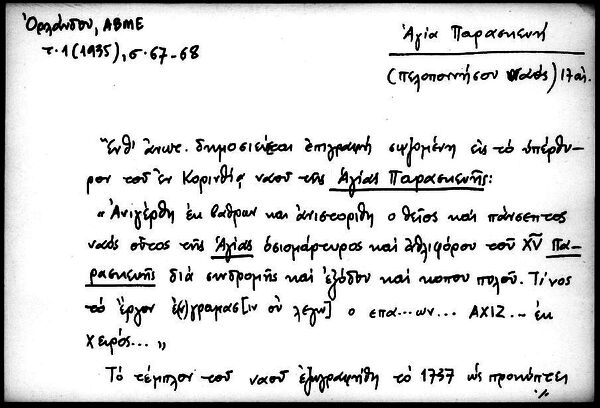 Ὀρλάνδου, ΑΒΜΕ
τ. 1 (1935), σ. 67-68
Ἁγία Παρασκευή
(Πελοποννήσου ναός) 17 αἰ.
Ἔνθ' ἀνωτ. δημοσιεύεται ἐπιγραφή σῳζομένη εἰς τό ὑπέρθυ-
ρον τοῦ ἐν Κορινθίᾳ ναοῦ τῆς Ἁγίας Παρασκευῆς:
« Ἀνιγέρθη ἐκ βαθρων και ἀνιστορίθη ο θεῖος καί πάνσεπτος
ναός οὗτος τῆς Ἁγίας ὁσιομάρτυρος καί ἀθλιφόρου τοῦ Χ͞Υ Πα-
ρασκευῆς διά συνδρομῆς καί ἐξόδου καί κοπου πολοῦ. Τίνος
τό ἔργον ἐ(ν)γραμασ[ιν οὐ λεγω] ο επα...ων... ΑΧΙΖ... ἐκ
χειρός... »
Τό τέμπλον τοῦ ναοῦ ἐζωγραφήθη τό 1737 ὡς προκύπτει
./.